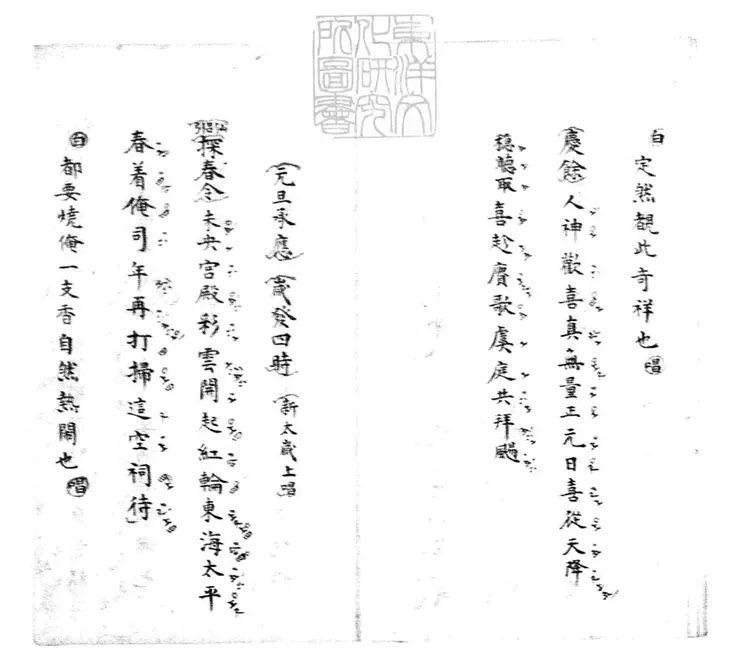 白 定然覩此奇祥也 唱
慶餘 人神歡喜真無量正元日喜從天降
穩聽取喜起賡歌虞庭共拜颺
元旦承應 歲發四時 新太歲上唱
探春令 未央宮殿彩雲開起紅輪東海太平
春着俺司年再打掃這空祠待
白 都要燒俺一支香自然熱鬧也 唱
東洋文
化研究
所圖書